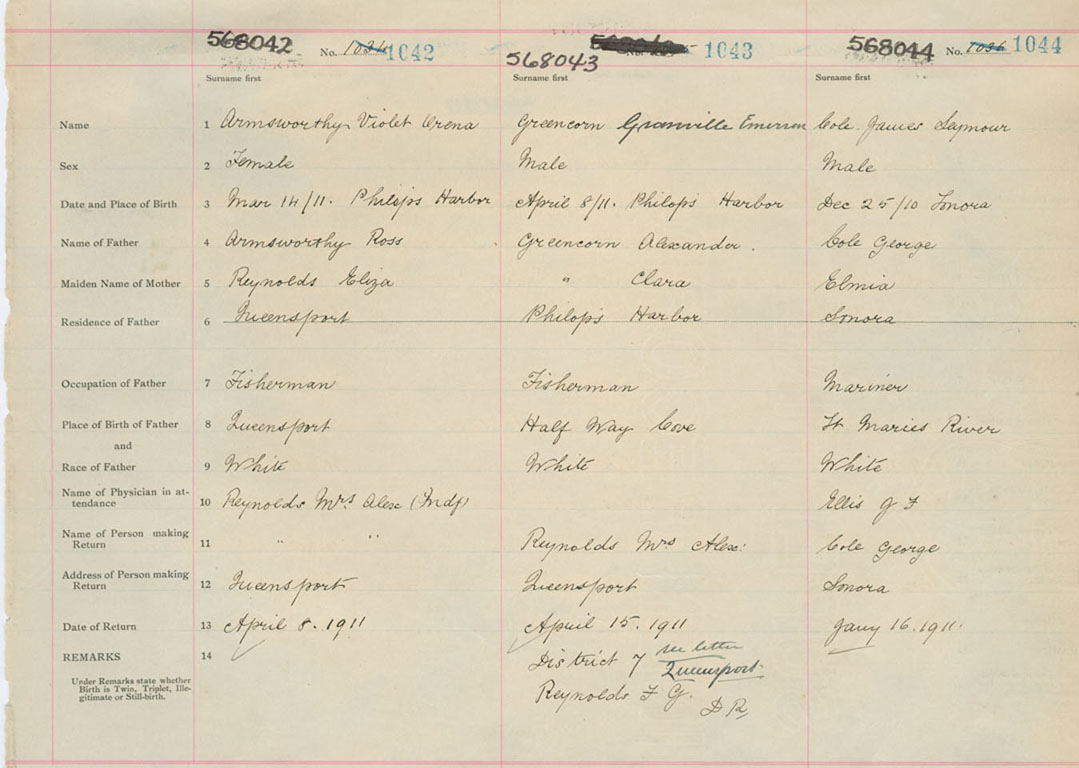 568042 No. 1042 568043 No. 1043 568044 No. 1036 1044
Surname first Surname first Surname first
Name 1 Armsworthy Violet Orena Greencorn Granville Emerson Cole James Seymour
Sex 2 Female Male Male
Date and Place of Birth 3 Mar 14/11. Philops Harbor April 8/11. Philops Harbor Dec 25/10 Sonora
Name of Father 4 Armsworthy Ross Greencorn Alexander. Cole George
Maiden Name of Mother 5 Reynolds Eliza " Clara Elmia
Residence of Father 6 Queensport Philops Harbor Sonora
Occupation of Father 7 Fisherman Fisherman Mariner
Place of Birth of Father 8 Queensport Half Way Cove St Maries River
and
Race of Father 9 White White White
Name of Physician in at-
tendance 10 Reynolds Mrs. Alex Ellis J F
Name of Person making
Return 11 " " Reynolds Mrs Alex: Cole George
Address of Person making
Return 12 Queensport Queensport Sonora
Date of Return 13 April 8. 1911 April 15. 1911 Jany 16. 1911.
REMARKS 14 District 7 see letter
Queensport
Under Remarks state whether
Birth is Twin, Triplet, Ille-
gitimate or Still-birth.
Reynolds F G. D R,